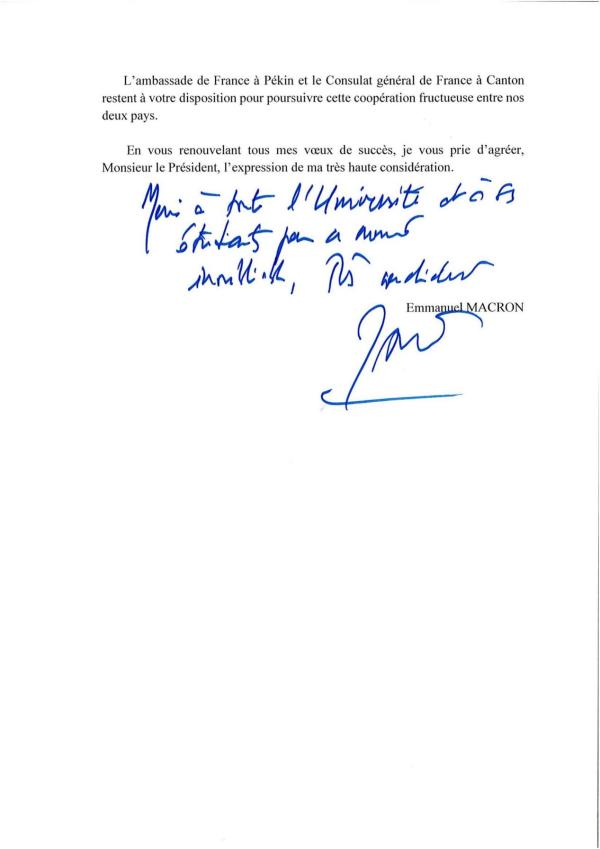 L’ambassade de France à Pékin et le Consulat général de France à Canton
restent à votre disposition pour poursuivre cette coopération fructueuse entre nos
deux pays.
En vous renouvelant tous mes vœux de succès, je vous prie d’agréer,
Monsieur le Président, l’expression de ma très haute considération.
Merci à toute l’Université et à ses
étudiants pour ce moment
inoubliable, Très cordialement
Emmanuel MACRON